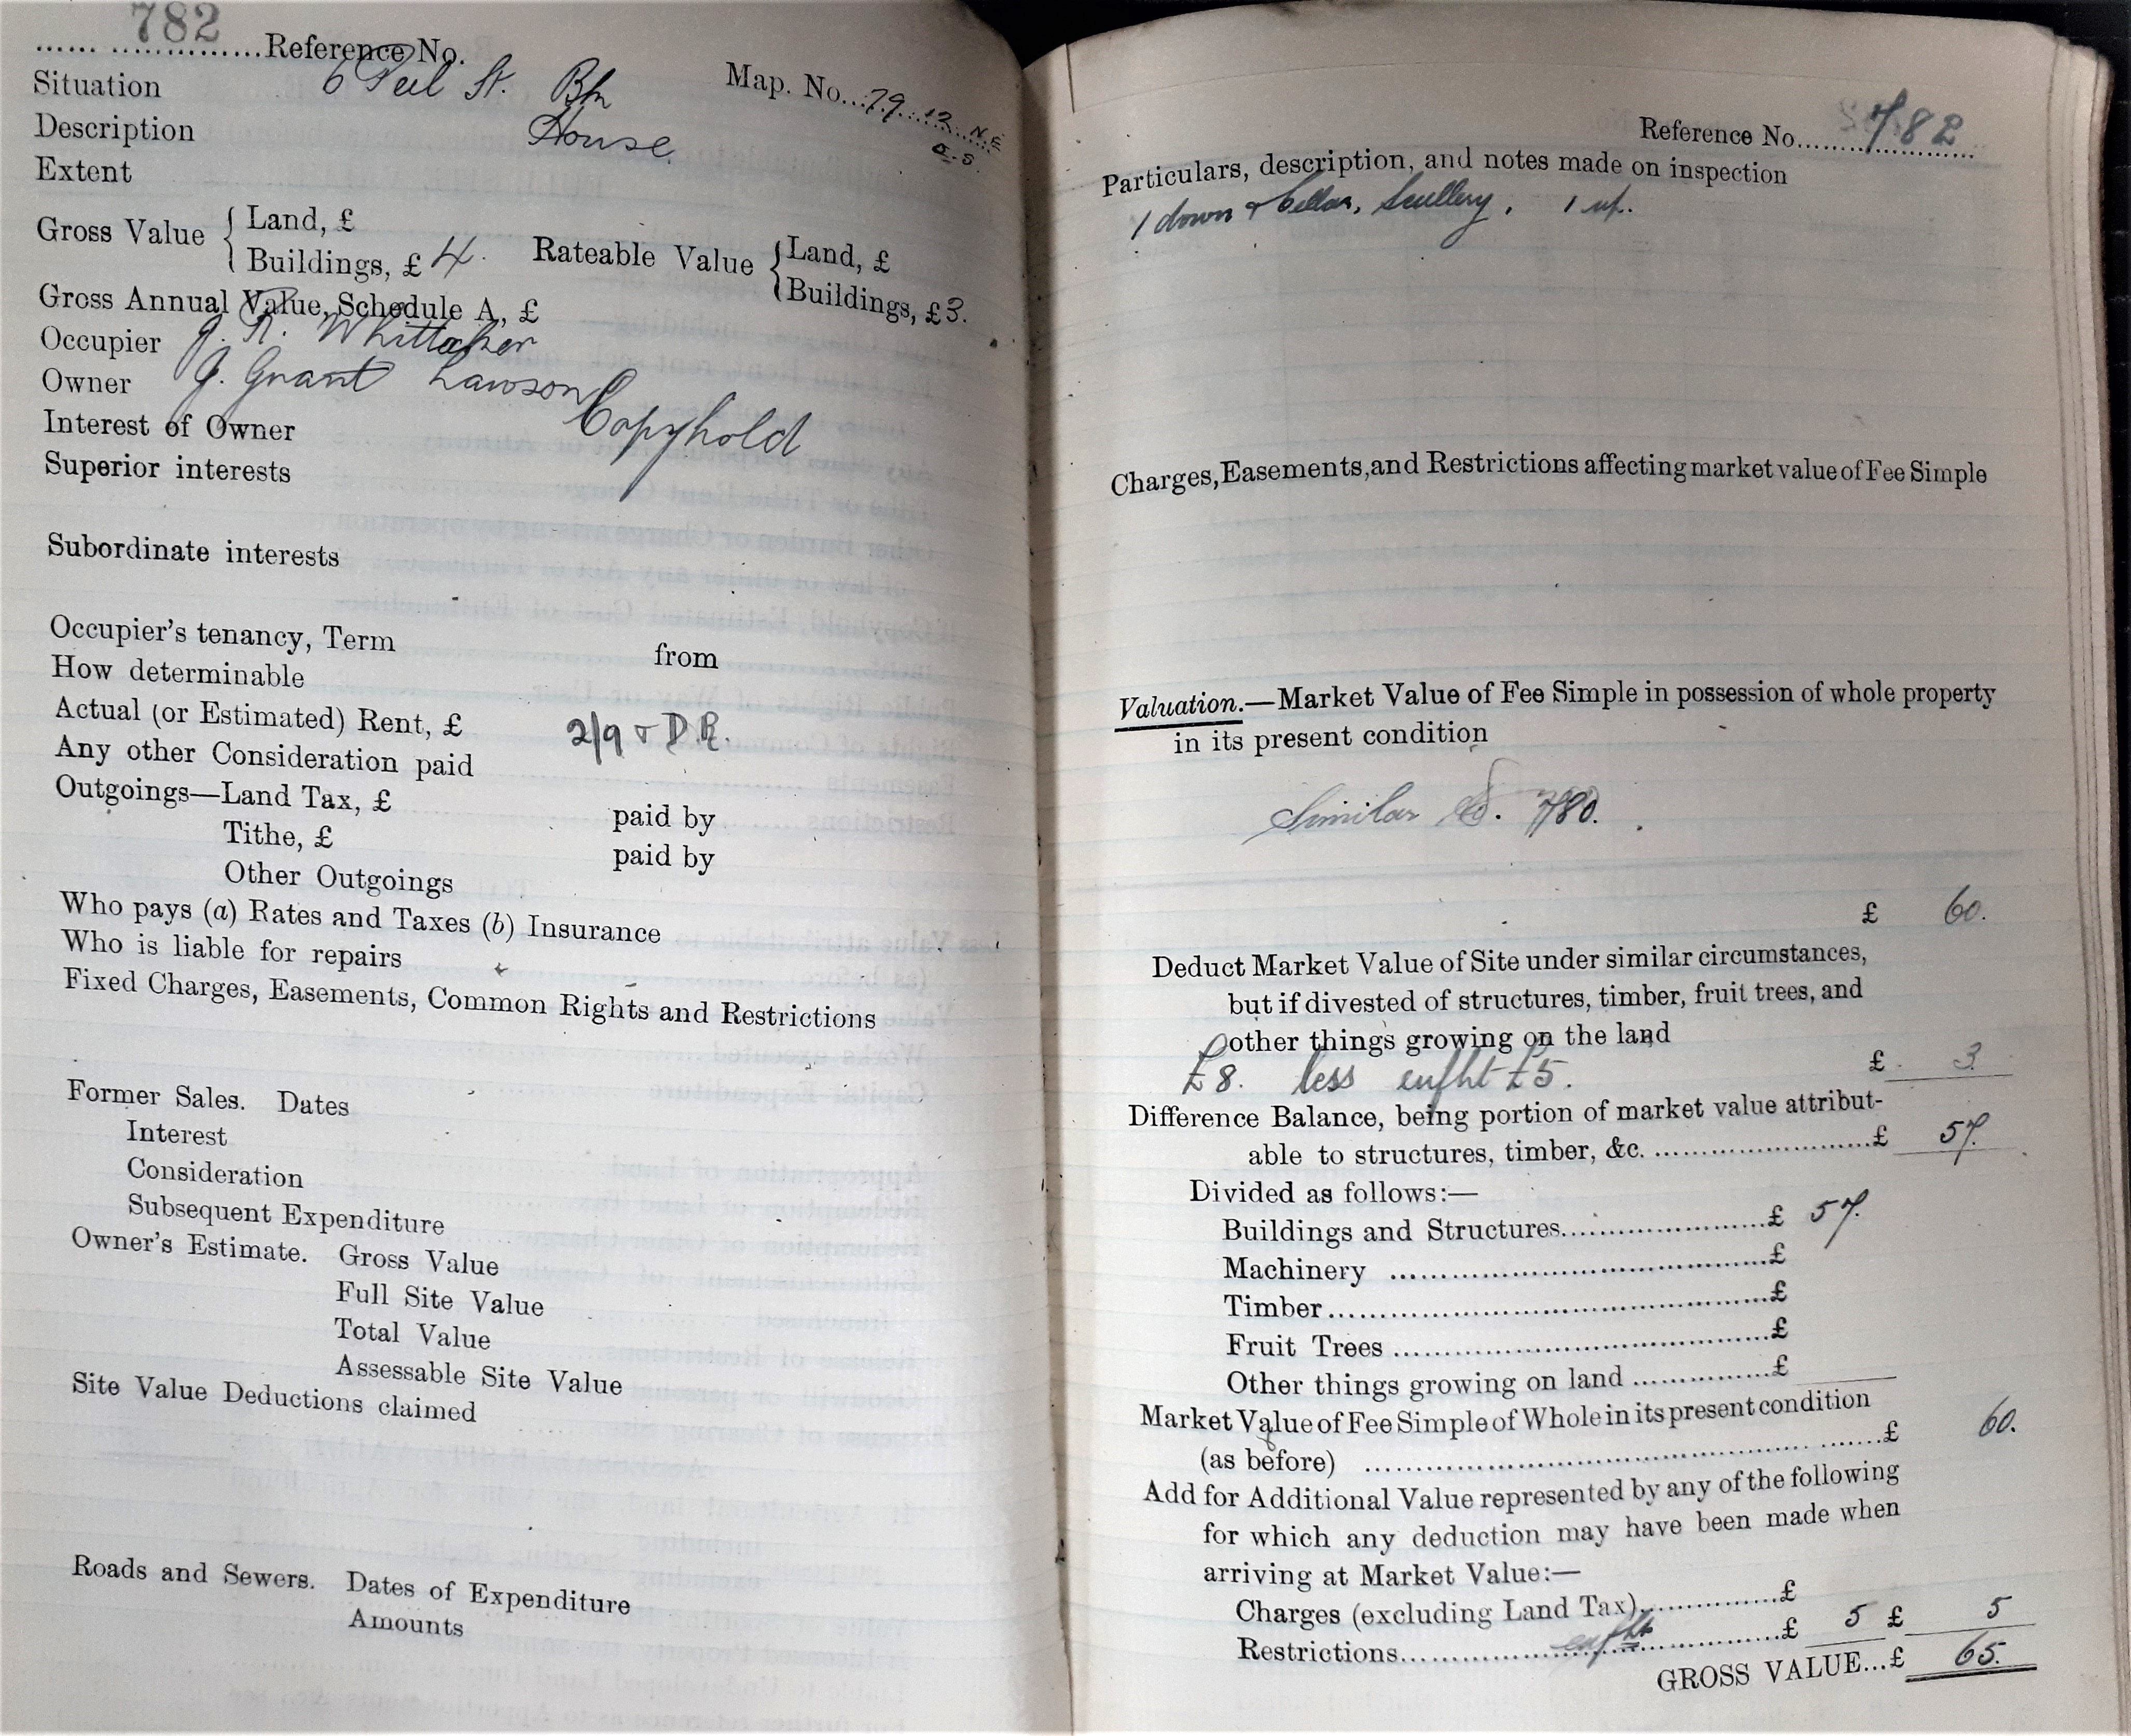 782
Reference No.
Situation 6 Peel St. Bfn
Map. No. 79.12. N.E
Description House.
Extent
Gross Value { Land, £
Buildings, £ 4.
Rateable Value { Land, £
Buildings, £ 3.
Gross Annual Value, Schedule A, £
Occupier J. R. Whittaker
Owner J. Grant Lawson
Interest of Owner Copyhold
Superior interests
Subordinate interests
Occupier's tenancy, Term from
How determinable
Actual (or Estimated) Rent, £ 2/9 & D.R.
Any other Consideration paid
Outgoings—Land Tax, £ paid by
Tithe, £ paid by
Other Outgoings
Who pays (a) Rates and Taxes (b) Insurance
Who is liable for repairs
Fixed Charges, Easements, Common Rights and Restrictions
Former Sales. Dates
Interest
Consideration
Subsequent Expenditure
Owner's Estimate. Gross Value
Full Site Value
Total Value
Assessable Site Value
Site Value Deductions claimed
Roads and Sewers. Dates of Expenditure
Amounts
Reference No. 782
Particulars, description, and notes made on inspection
1 down & Cellar, Scullery, 1 up.
Charges, Easements, and Restrictions affecting market value of Fee Simple
Valuation.—Market Value of Fee Simple in possession of whole property
in its present condition
Similar 780.
£ 60.
Deduct Market Value of Site under similar circumstances,
but if divested of structures, timber, fruit trees, and
other things growing on the land
£8. less enfht £5. £ 3.
Difference Balance, being portion of market value attribut-
able to structures, timber, &c. £ 57.
Divided as follows:—
Buildings and Structures £ 57.
Machinery £
Timber £
Fruit Trees £
Other things growing on land £
Market Value of Fee Simple of Whole in its present condition
(as before) £ 60.
Add for Additional Value represented by any of the following
for which any deduction may have been made when
arriving at Market Value:—
Charges (excluding Land Tax) £
Restrictions enfht £ 5 £ 5
GROSS VALUE...£ 65.